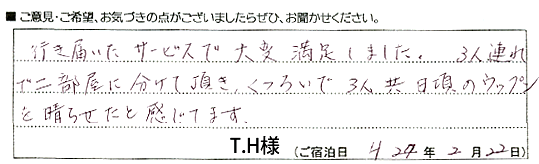 ■ ご意見・ご希望、お気づきの点がございましたらぜひ、お聞かせください。
行き届いたサービスで大変満足しました。 3人連れ
で二部屋に分けて頂き、くつろいで3人共日頃のウップン
を晴らせたと感じてます.
T.H様 (ご宿泊日 H27年2月22日)